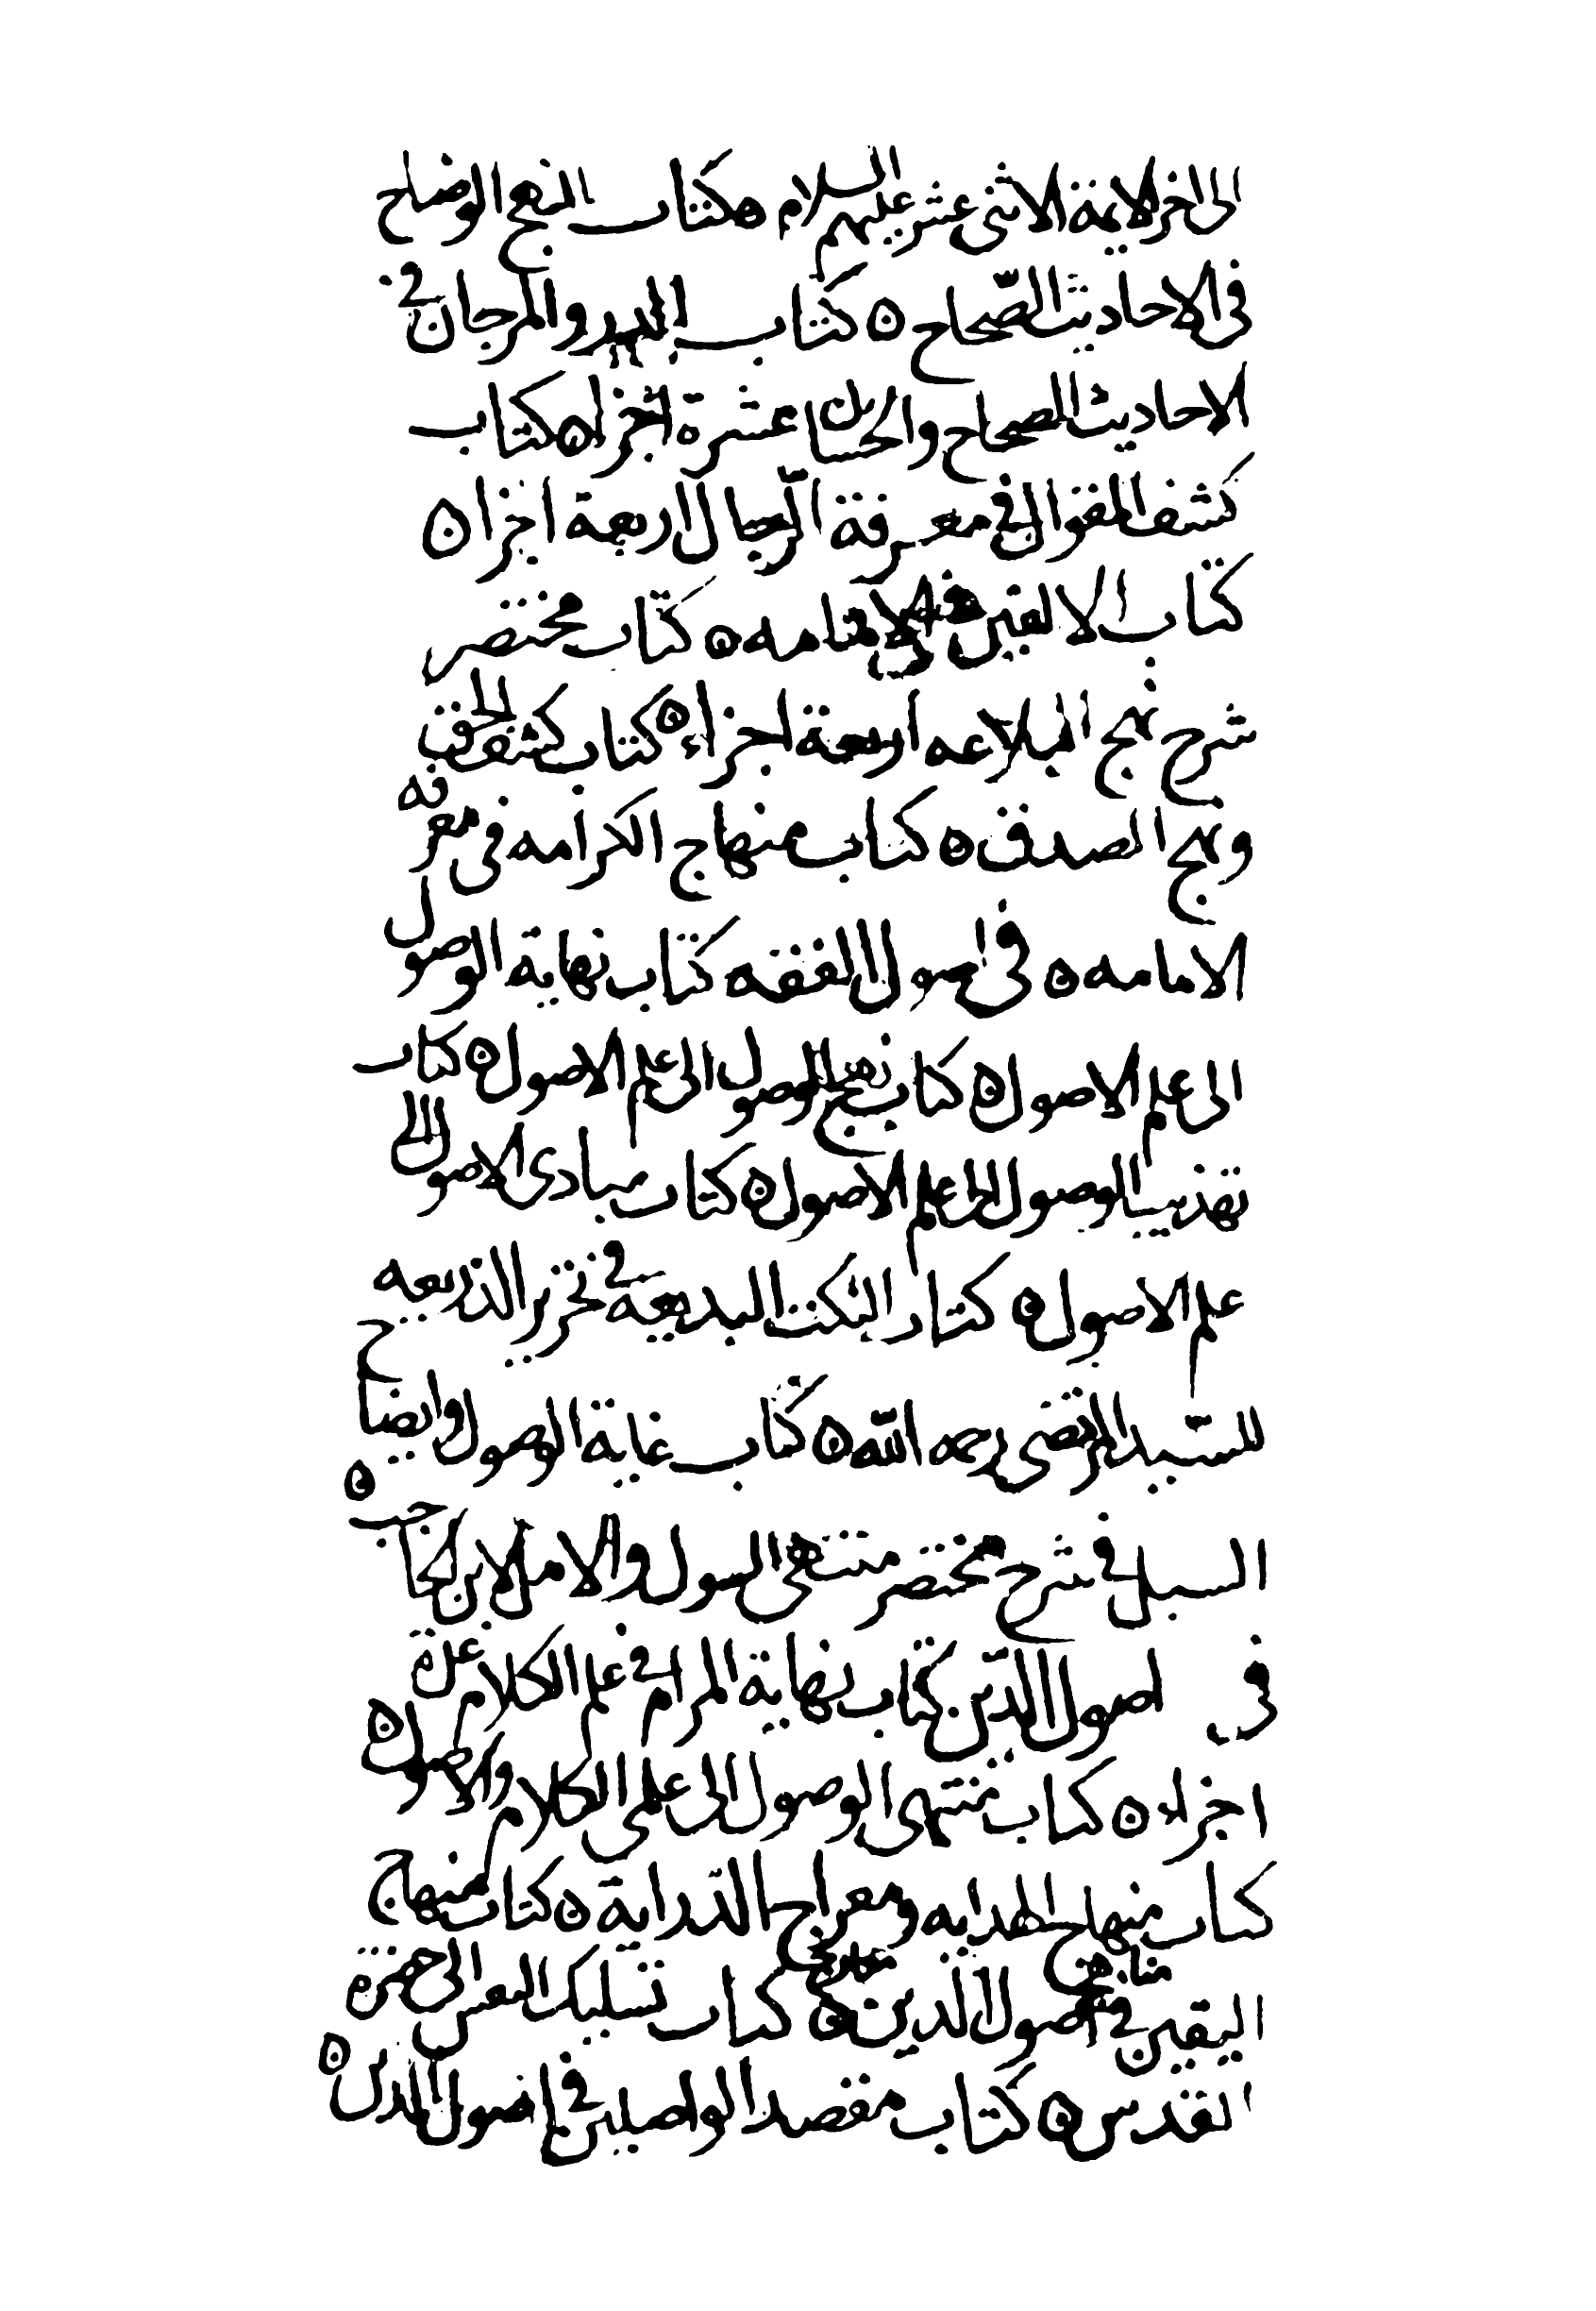 الى اخر الايمة الاثنى عشر عليهم السلام ه كتاب النهج الوضاح
فى الاحاديث الصّحاح ه كتاب الدر والمرجان فى
الاحاديث الصحاح والحسان عشرة اجزاء ه كتاب
كشف المقال فى معرفة الرّجال اربعة اجزا ه
كتاب الالفين فى الامامه ه كتاب مختصر
شرح نهج البلاغه اربعة اجزاء ه كتاب كشف الحق
ونهج الصدق ه كتاب منهاج الكرامه فى معرفه
الامامه ه فى اصول الفقه كتاب نهاية الوصول
الى علم الاصول ه كتاب نهج الوصول الى علم الاصول ه كتاب
تهذيب الوصول الى علم الاصول ه كتاب مبادى الاصول الى
علم الاصول ه كتاب النكت البديعة فى تحرير الذريعه
للسّيد المرتضى رحمه الله ه كتاب غاية الوصول وايضاح
السبل فى شرح مختصر منتهى السول والامل لابن الحاجب ه
فى اصول الدّين كتاب نهاية المرام فى علم الكلام عدة
اجزاء ه كتاب منتهى الوصول الى علمى الكلام والاصول ه
كتاب منهاج الهدايه ومعراج الدّراية ه كتاب منهاج
اليقين فى اصول الدّين ه كتاب تسليك النفس الى حضرة
القدس ه كتاب مقصد الواصلين فى اصول الدين ه